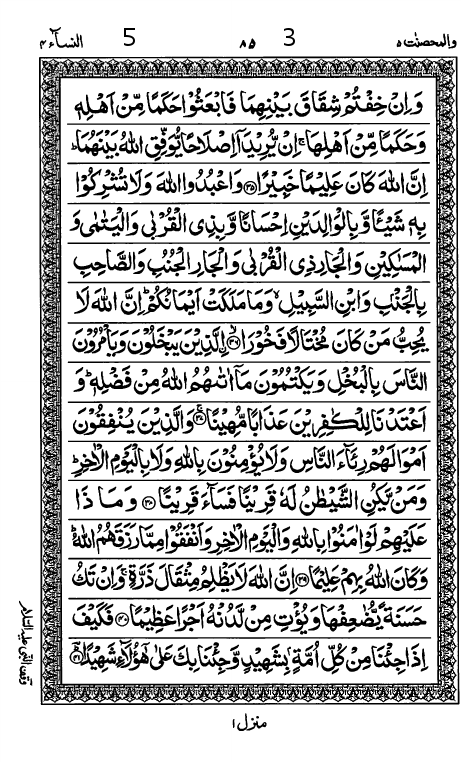 والمحصنت ٥ 3 ٨٥ 5 النسآء ٤
وَاِنْ خِفْتُمْ شِقَاقَ بَيْنِهِمَا فَابْعَثُوْا حَكَمًا مِّنْ اَهْلِهٖ
وَحَكَمًا مِّنْ اَهْلِهَا ۚ اِنْ يُّرِيْدَاۤ اِصْلَاحًا يُّوَفِّقِ اللّٰهُ بَيْنَهُمَا ؕ
اِنَّ اللّٰهَ كَانَ عَلِيْمًا خَبِيْرًا ﴿۳۵﴾ وَاعْبُدُوا اللّٰهَ وَلَا تُشْرِكُوْا
بِهٖ شَيْـًٔا وَّ بِالْوَالِدَيْنِ اِحْسَانًا وَّ بِذِی الْقُرْبٰى وَالْيَتٰمٰى وَ
الْمَسٰكِيْنِ وَالْجَارِ ذِی الْقُرْبٰى وَالْجَارِ الْجُنُبِ وَالصَّاحِبِ
بِالْجَنْۢبِ وَابْنِ السَّبِيْلِ ۙ وَمَا مَلَكَتْ اَيْمَانُكُمْ ؕ اِنَّ اللّٰهَ لَا
يُحِبُّ مَنْ كَانَ مُخْتَالًا فَخُوْرًا ﴿۳۶﴾ ۙ الَّذِيْنَ يَبْخَلُوْنَ وَيَاْمُرُوْنَ
النَّاسَ بِالْبُخْلِ وَيَكْتُمُوْنَ مَاۤ اٰتٰىهُمُ اللّٰهُ مِنْ فَضْلِهٖ ؕ وَ
اَعْتَدْنَا لِلْكٰفِرِيْنَ عَذَابًا مُّهِيْنًا ﴿۳۷﴾ ۚ وَالَّذِيْنَ يُنْفِقُوْنَ
اَمْوَالَهُمْ رِئَآءَ النَّاسِ وَلَا يُؤْمِنُوْنَ بِاللّٰهِ وَلَا بِالْيَوْمِ الْاٰخِرِ ؕ
وَمَنْ يَّكُنِ الشَّيْطٰنُ لَهٗ قَرِيْنًا فَسَآءَ قَرِيْنًا ﴿۳۸﴾ وَمَا ذَا
عَلَيْهِمْ لَوْ اٰمَنُوْا بِاللّٰهِ وَالْيَوْمِ الْاٰخِرِ وَاَنْفَقُوْا مِمَّا رَزَقَهُمُ اللّٰهُ ؕ
وَكَانَ اللّٰهُ بِهِمْ عَلِيْمًا ﴿۳۹﴾ اِنَّ اللّٰهَ لَا يَظْلِمُ مِثْقَالَ ذَرَّةٍ ۚ وَاِنْ تَكُ
حَسَنَةً يُّضٰعِفْهَا وَيُؤْتِ مِنْ لَّدُنْهُ اَجْرًا عَظِيْمًا ﴿۴۰﴾ فَكَيْفَ
اِذَا جِئْنَا مِنْ كُلِّ اُمَّةٍۭ بِشَهِيْدٍ وَّجِئْنَا بِكَ عَلٰى هٰٓؤُلَآءِ شَهِيْدًا ﴿۴۱﴾ ؕ
وقف النبی علیہ السلام
منزل ۱